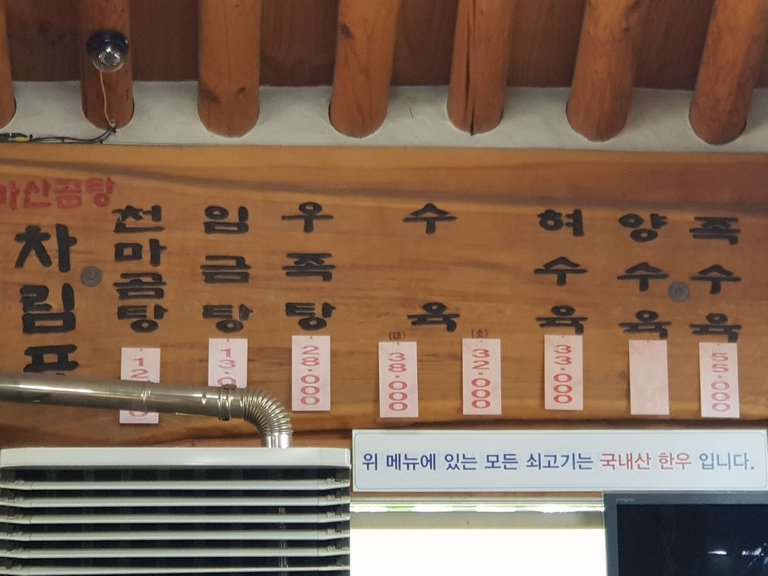 마산곰탕
차림표
천마곰탕
임금탕
우족탕
28,000
수육
(대)
38,000
(소)
32,000
혀수육
33,000
양수육
족수육
55,000
위 메뉴에 있는 모든 쇠고기는 국내산 한우 입니다.